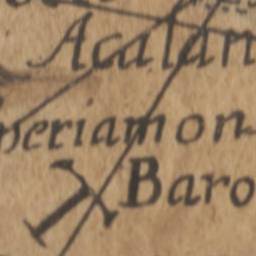 Acalan
periamon
Baro